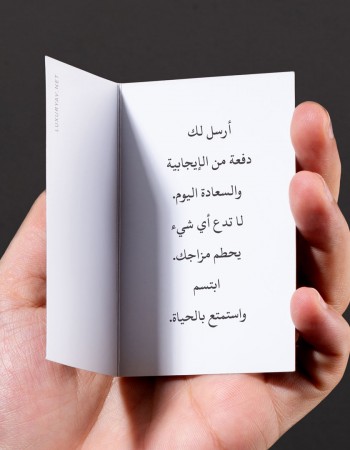 أرسل لك
دفعة من الإيجابية
والسعادة اليوم.
لا تدع أي شيء
يحطم مزاجك.
ابتسم
واستمتع بالحياة.